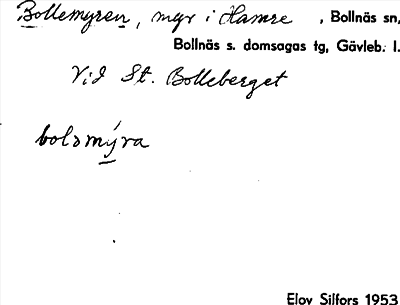 Bollemyren, myr i Hamre , Bollnäs sn,
Bollnäs s. domsagas tg, Gävleb. l.
Vid St. Bolleberget
bolɔmýra
Elov Silfors 1953